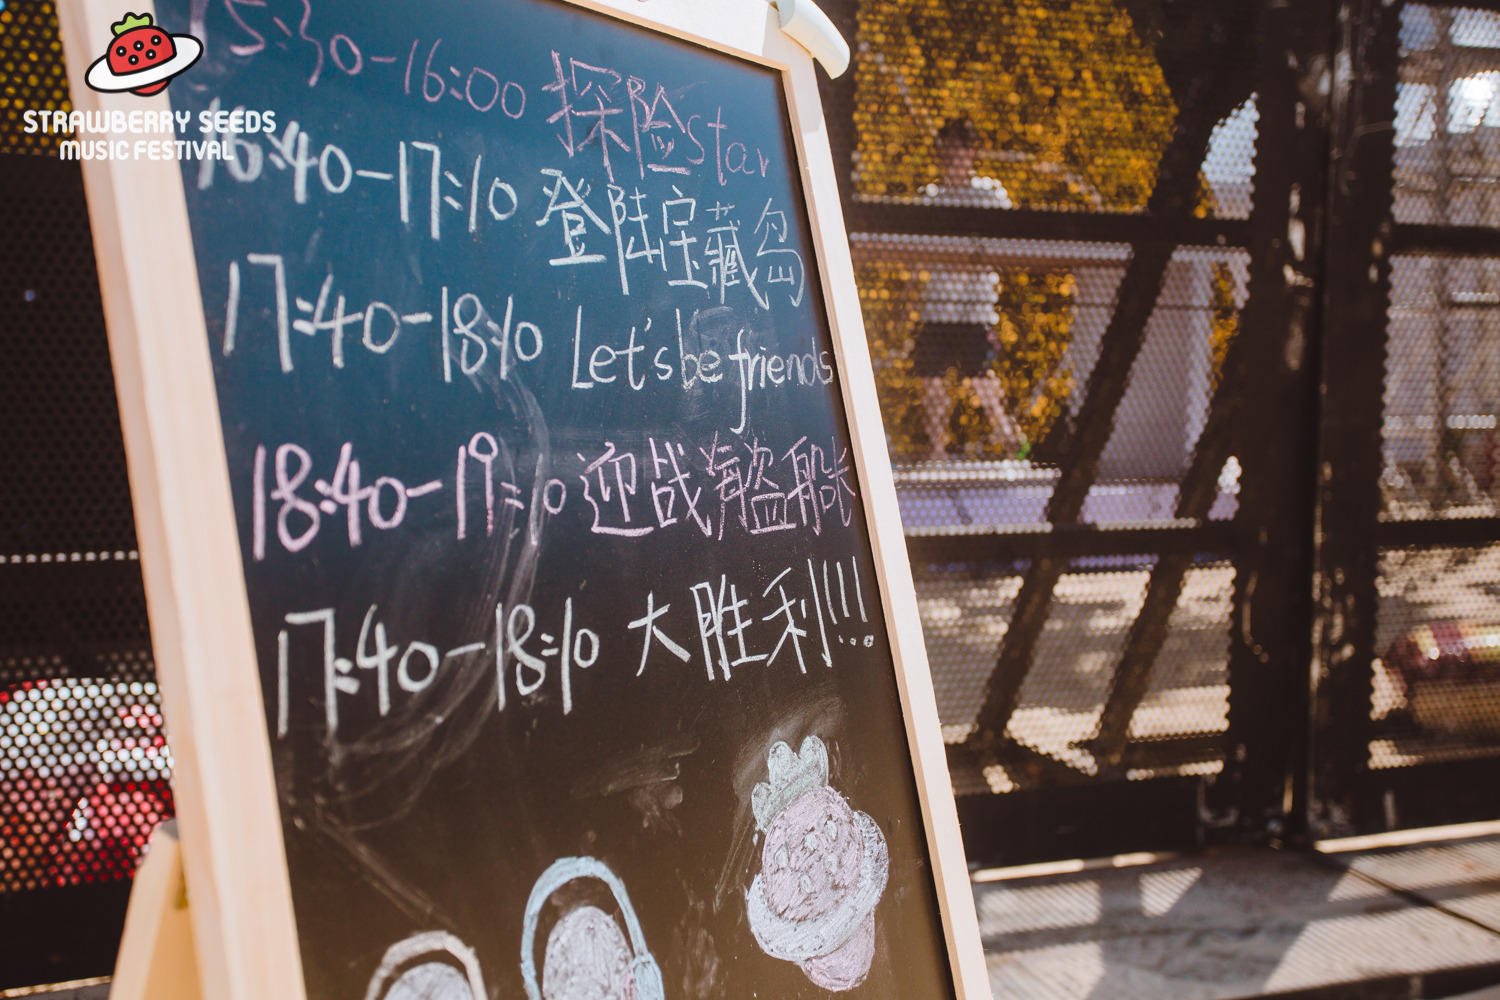 STRAWBERRY SEEDS
MUSIC FESTIVAL
15:30-16:00 探险star
16:40-17:10 登陆宝藏岛
17:40-18:10 Let's be friends
18:40-19:10 迎战海盗船长
17:40-18:10 大胜利!!!